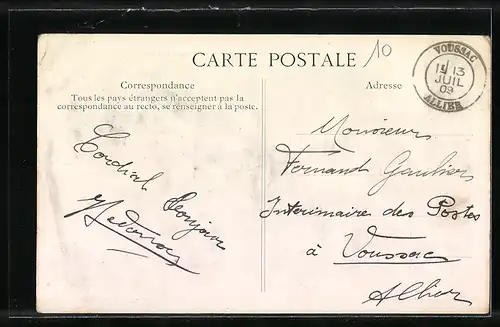 CARTE POSTALE
10
VOUSSAC
13
JUIL
09
ALLIER
Correspondance
Tous les pays étrangers n'acceptent pas la
correspondance au recto, se renseigner à la poste.
Adresse
Cordial Bonjour
Monsieur
Fernand Gaultier
Intérimaire des Postes
à Voussac
Allier